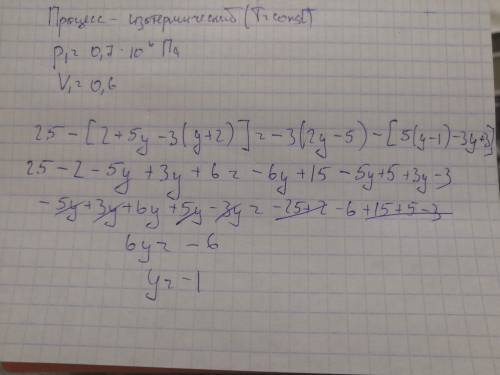 Процесс - изотермический (T=const)
p₁ = 0,7 · 10⁶ Па
V₁ = 0,6
25 - [2 + 5y - 3(y+2)] = -3(2y-5) - [5(y-1) - 3y+3]
25 - 2 - 5y + 3y + 6 = -6y + 15 - 5y + 5 + 3y - 3
-5y + 3y + 6y + 5y - 3y = -25 + 2 - 6 + 15 + 5 - 3
6y = -6
y = -1